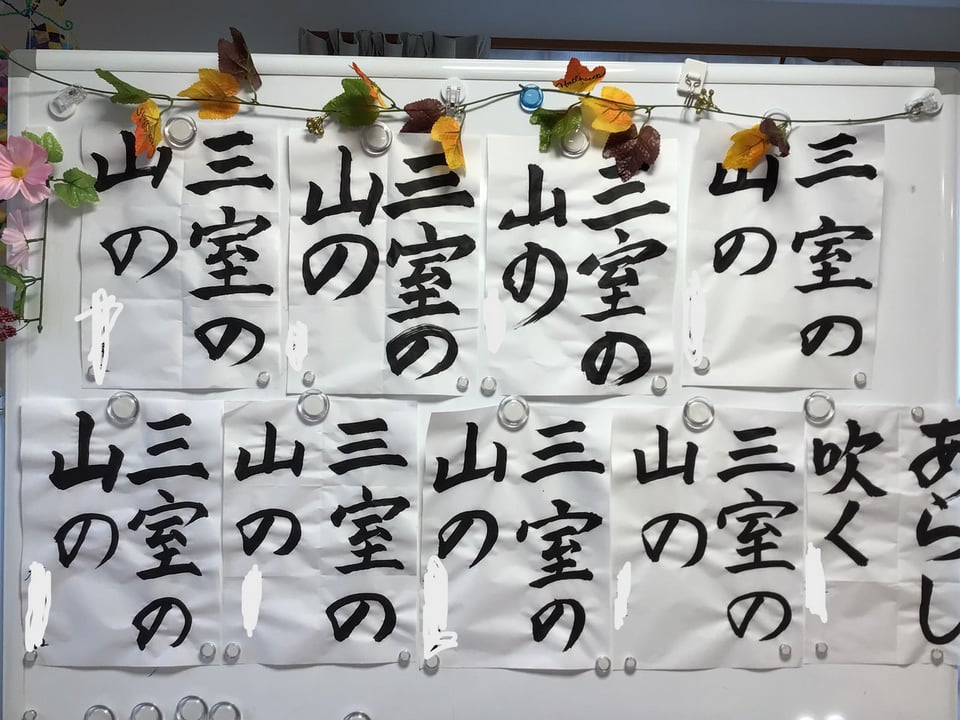 三室の
山の
三室の
山の
三室の
山の
三室の
山の
三室の
山の
三室の
山の
三室の
山の
三室の
山の
あらし
吹く